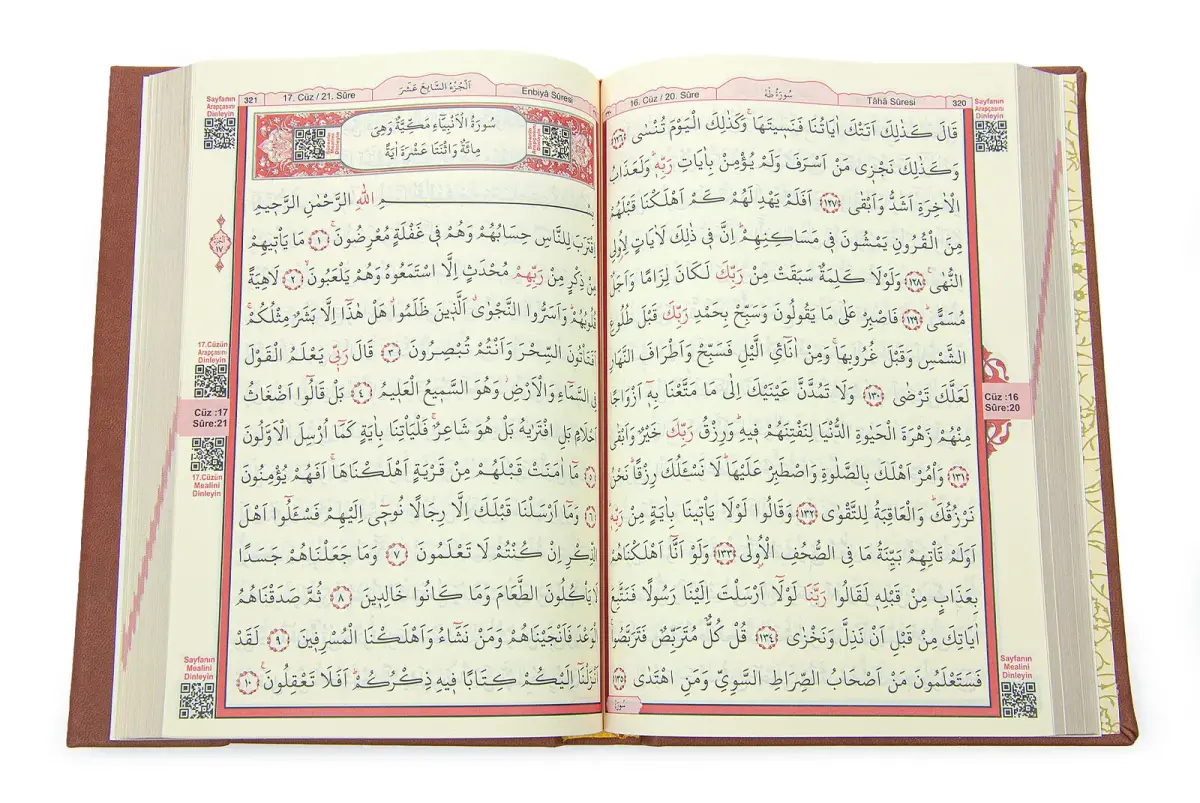 سُورَةُ طٰهٰ
16. Cüz / 20. Sûre
Tâhâ Sûresi
320
Sayfanın
Arapçasını
Dinleyin
قَالَ كَذٰلِكَ اَتَتْكَ اٰيَاتُنَا فَنَسِيتَهَاۚ وَكَذٰلِكَ الْيَوْمَ تُنْسٰى ﴿١٢٦﴾
وَكَذٰلِكَ نَجْزٖي مَنْ اَسْرَفَ وَلَمْ يُؤْمِنْ بِاٰيَاتِ رَبِّهٖۜ وَلَعَذَابُ
الْاٰخِرَةِ اَشَدُّ وَاَبْقٰى ﴿١٢٧﴾ اَفَلَمْ يَهْدِ لَهُمْ كَمْ اَهْلَكْنَا قَبْلَهُمْ
مِنَ الْقُرُونِ يَمْشُونَ فٖي مَسَاكِنِهِمْۜ اِنَّ فٖي ذٰلِكَ لَاٰيَاتٍ لِاُولِي
النُّهٰى۟ ﴿١٢٨﴾ وَلَوْلَا كَلِمَةٌ سَبَقَتْ مِنْ رَبِّكَ لَكَانَ لِزَامًا وَاَجَلٌ
مُسَمًّىۜ ﴿١٢٩﴾ فَاصْبِرْ عَلٰى مَا يَقُولُونَ وَسَبِّحْ بِحَمْدِ رَبِّكَ قَبْلَ طُلُوعِ
الشَّمْسِ وَقَبْلَ غُرُوبِهَاۚ وَمِنْ اٰنَٓائِ الَّيْلِ فَسَبِّحْ وَاَطْرَافَ النَّهَارِ
لَعَلَّكَ تَرْضٰى ﴿١٣٠﴾ وَلَا تَمُدَّنَّ عَيْنَيْكَ اِلٰى مَا مَتَّعْنَا بِهٖٓ اَزْوَاجًا
مِنْهُمْ زَهْرَةَ الْحَيٰوةِ الدُّنْيَا لِنَفْتِنَهُمْ فٖيهِۜ وَرِزْقُ رَبِّكَ خَيْرٌ وَاَبْقٰى
﴿١٣١﴾ وَأْمُرْ اَهْلَكَ بِالصَّلٰوةِ وَاصْطَبِرْ عَلَيْهَاۜ لَا نَسْـَٔلُكَ رِزْقًاۜ نَحْنُ
نَرْزُقُكَۜ وَالْعَاقِبَةُ لِلتَّقْوٰى ﴿١٣٢﴾ وَقَالُوا لَوْلَا يَأْتٖينَا بِاٰيَةٍ مِنْ رَبِّهٖۜ
اَوَلَمْ تَأْتِهِمْ بَيِّنَةُ مَا فِي الصُّحُفِ الْاُولٰى ﴿١٣٣﴾ وَلَوْ اَنَّٓا اَهْلَكْنَاهُمْ
بِعَذَابٍ مِنْ قَبْلِهٖ لَقَالُوا رَبَّنَا لَوْلَٓا اَرْسَلْتَ اِلَيْنَا رَسُولًا فَنَتَّبِعَ
اٰيَاتِكَ مِنْ قَبْلِ اَنْ نَذِلَّ وَنَخْزٰى ﴿١٣٤﴾ قُلْ كُلٌّ مُتَرَبِّصٌ فَتَرَبَّصُواۚ
فَسَتَعْلَمُونَ مَنْ اَصْحَابُ الصِّرَاطِ السَّوِيِّ وَمَنِ اهْتَدٰى ﴿١٣٥﴾
سُورَةُ
Cüz :16
Sûre:20
Sayfanın
Mealini
Dinleyin
321
17. Cüz / 21. Sûre
اَلْجُزْءُ السَّابِعَ عَشَرَ
Enbiyâ Sûresi
Sayfanın
Arapçasını
Dinleyin
سُورَةُ الْاَنْبِيَٓاءِ مَكِّيَّةٌ وَهِيَ
مِائَةٌ وَاثْنَتَا عَشْرَةَ اٰيَةً
بِسْمِ اللّٰهِ الرَّحْمٰنِ الرَّحٖيمِ
اِقْتَرَبَ لِلنَّاسِ حِسَابُهُمْ وَهُمْ فٖي غَفْلَةٍ مُعْرِضُونَۚ ﴿١﴾ مَا يَأْتٖيهِمْ
مِنْ ذِكْرٍ مِنْ رَبِّهِمْ مُحْدَثٍ اِلَّا اسْتَمَعُوهُ وَهُمْ يَلْعَبُونَۙ ﴿٢﴾ لَاهِيَةً
قُلُوبُهُمْۜ وَاَسَرُّوا النَّجْوٰىۗ اَلَّذٖينَ ظَلَمُواۗ هَلْ هٰذَٓا اِلَّا بَشَرٌ مِثْلُكُمْۚ
اَفَتَأْتُونَ السِّحْرَ وَاَنْتُمْ تُبْصِرُونَ ﴿٣﴾ قَالَ رَبّٖي يَعْلَمُ الْقَوْلَ
فِي السَّمَٓاءِ وَالْاَرْضِۘ وَهُوَ السَّمٖيعُ الْعَلٖيمُ ﴿٤﴾ بَلْ قَالُٓوا اَضْغَاثُ
اَحْلَامٍ بَلِ افْتَرٰيهُ بَلْ هُوَ شَاعِرٌۚ فَلْيَأْتِنَا بِاٰيَةٍ كَمَٓا اُرْسِلَ الْاَوَّلُونَ
﴿٥﴾ مَٓا اٰمَنَتْ قَبْلَهُمْ مِنْ قَرْيَةٍ اَهْلَكْنَاهَاۚ اَفَهُمْ يُؤْمِنُونَ
﴿٦﴾ وَمَٓا اَرْسَلْنَا قَبْلَكَ اِلَّا رِجَالًا نُوحٖٓي اِلَيْهِمْ فَسْـَٔلُٓوا اَهْلَ
الذِّكْرِ اِنْ كُنْتُمْ لَا تَعْلَمُونَ ﴿٧﴾ وَمَا جَعَلْنَاهُمْ جَسَدًا
لَا يَأْكُلُونَ الطَّعَامَ وَمَا كَانُوا خَالِدٖينَ ﴿٨﴾ ثُمَّ صَدَقْنَاهُمُ
الْوَعْدَ فَاَنْجَيْنَاهُمْ وَمَنْ نَشَٓاءُ وَاَهْلَكْنَا الْمُسْرِفٖينَ ﴿٩﴾ لَقَدْ
اَنْزَلْنَٓا اِلَيْكُمْ كِتَابًا فٖيهِ ذِكْرُكُمْۜ اَفَلَا تَعْقِلُونَ۟ ﴿١٠﴾
17.Cüzün
Arapçasını
Dinleyin
Cüz :17
Sûre:21
17.Cüzün
Mealini
Dinleyin
Sayfanın
Mealini
Dinleyin